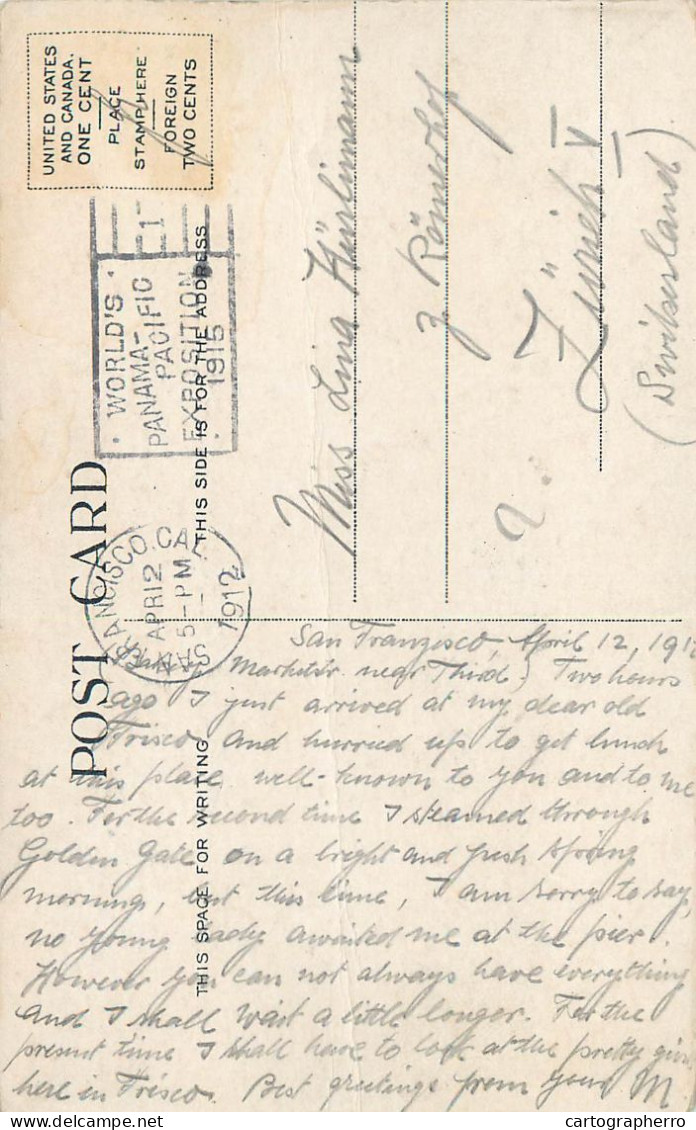 POST CARD
THIS SPACE FOR WRITING
THIS SIDE IS FOR THE ADDRESS
UNITED STATES
AND CANADA.
ONE CENT
PLACE
STAMP HERE
FOREIGN
TWO CENTS
WORLD'S
PANAMA-
PACIFIC
EXPOSITION
1915
SAN FRANCISCO, CAL.
APR 12
5-PM
1912
Miss Lina Hürlimann
z Römerhof
Zürich V
(Switserland)
San Franzisco, April 12, 191
Marketstr. near Third) Two hours
ago I just arrived at my dear old
Frisco and hurried up to get lunch
at this place well-known to you and to me
too. For the second time I steamed through
Golden Gate on a bright and fresh spring
morning, but this time, I am sorry to say,
no young lady awaited me at the pier.
However you can not always have everything
and I shall wait a little longer. For the
present time I shall have to look at the pretty girls
here in Frisco. Best greetings from your M
cartographerro